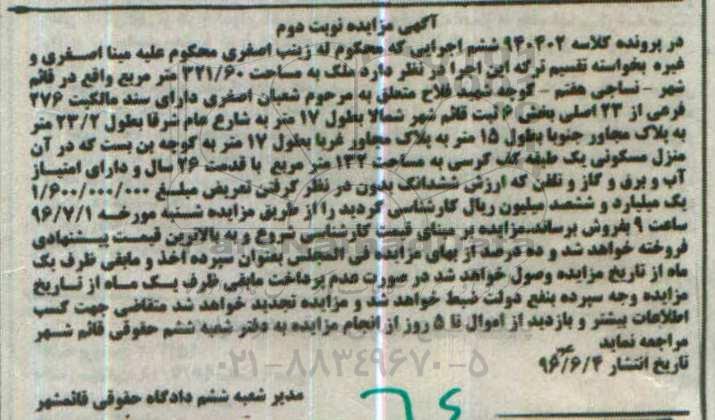 آگهی مزایده نوبت دوم
در پرونده کلاسه ۹۴۰۴۰۲ ششم اجرایی که محکوم له زینب اصغری محکوم علیه مینا اصغری و
غیره بخواسته تقسیم ترکه این اجرا در نظر دارد ملک به مساحت ۳۲۱/۶۰ متر مربع واقع در قائم
شهر - نساجی هفتم - کوچه شهید فلاح متعلق به مرحوم شعبان اصغری دارای سند مالکیت ۲۷۶
فرعی از ۲۳ اصلی بخش ۶ ثبت قائم شهر شمالا بطول ۱۷ متر به شارع عام شرقا بطول ۲۳/۲ متر
به پلاک مجاور جنوبا بطول ۱۵ متر به پلاک مجاور غربا بطول ۱۷ متر به کوچه بن بست که در آن
منزل مسکونی یک طبقه کف کرسی به مساحت ۱۳۲ متر مربع با قدمت ۲۶ سال و دارای امتیاز
آب و برق و گاز و تلفن که ارزش ششدانگ بدون در نظر گرفتن تعریض مبلغ ۱/۶۰۰/۰۰۰/۰۰۰
یک میلیارد و ششصد میلیون ریال کارشناسی گردید را از طریق مزایده شنبه مورخه ۹۶/۷/۱
ساعت ۹ بفروش برساند.مزایده بر مبنای قیمت کارشناسی شروع و به بالاترین قیمت پیشنهادی
فروخته خواهد شد و ده درصد از بهای مزایده فی المجلس بعنوان سپرده اخذ و مابقی ظرف یک
ماه از تاریخ مزایده وصول خواهد شد در صورت عدم پرداخت مابقی ظرف یک ماه از تاریخ
مزایده وجه سپرده بنفع دولت ضبط خواهد شد و مزایده تجدید خواهد شد متقاضی جهت کسب
اطلاعات بیشتر و بازدید از اموال تا ۵ روز از انجام مزایده به دفتر شعبه ششم حقوقی قائم شهر
مراجعه نماید
تاریخ انتشار ۹۶/۶/۴
۰۲۱-۸۸۳۴۹۶۷۰-۵
مدیر شعبه ششم دادگاه حقوقی قائمشهر